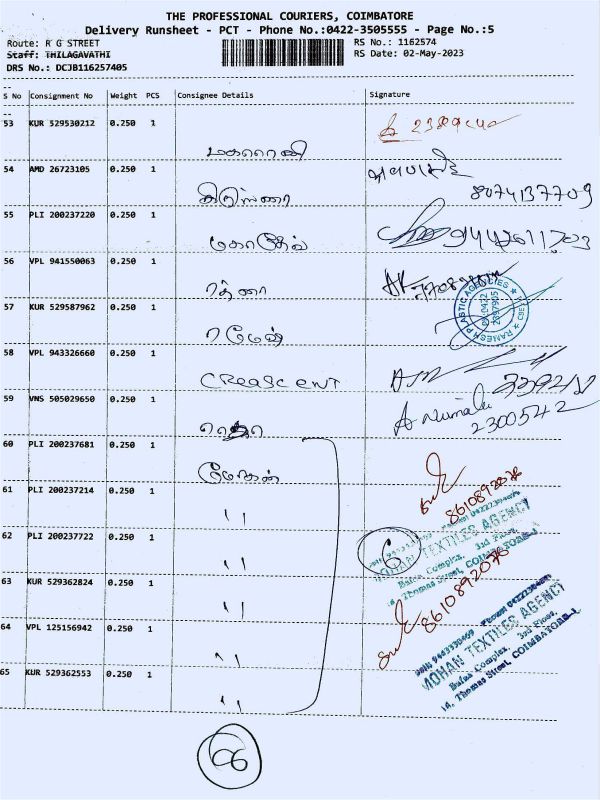 THE PROFESSIONAL COURIERS, COIMBATORE
Delivery Runsheet - PCT - Phone No.:0422-3505555 - Page No.:5
Route: R G STREET
RS No.: 1162574
Staff: THILAGAVATHI
RS Date: 02-May-2023
DRS No.: DCJB116257405
S No Consignment No Weight PCS Consignee Details Signature
53 KUR 529530212 0.250 1
மகாராணி
54 AMD 26723105 0.250 1
கிருஸ்ணா
8074137709
55 PLI 200237220 0.250 1
56 VPL 941550063 0.250 1
ரத்னா
57 KUR 529587962 0.250 1
ரமேஷ்
RAMESH PLASTIC AGENCIES
58 VPL 943326660 0.250 1
CREASCENT
59 VNS 505029650 0.250 1
2300542
60 PLI 200237681 0.250 1
மோகன்
61 PLI 200237214 0.250 1
"
62 PLI 200237722 0.250 1
"
6
MOHAN TEXTILES AGENCY
Bafna Complex, 3rd Floor,
14, Thomas Street, COIMBATORE-1.
63 KUR 529362824 0.250 1
"
8610892076
64 VPL 125156942 0.250 1
"
MOHAN TEXTILES AGENCY
Bafna Complex, 3rd Floor,
14, Thomas Street, COIMBATORE-1.
65 KUR 529362553 0.250 1
"